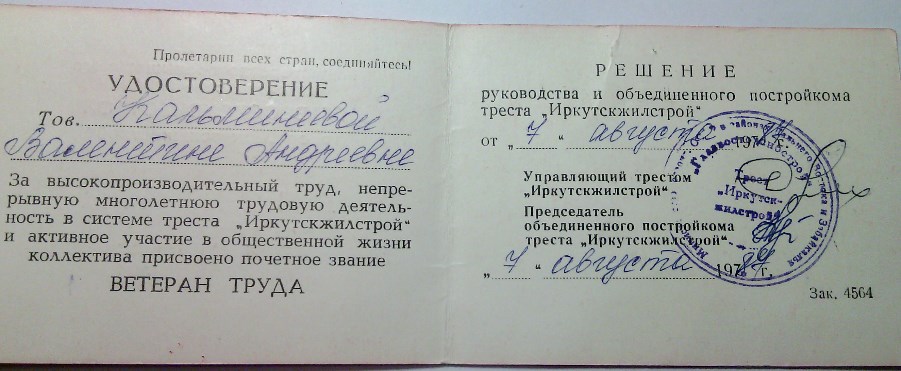 Пролетарии всех стран, соединяйтесь!
УДОСТОВЕРЕНИЕ
Тов.
Валентине Андреевне
За высокопроизводительный труд, непре-
рывную многолетнюю трудовую деятель-
ность в системе треста „Иркутскжилстрой“
и активное участие в общественной жизни
коллектива присвоено почетное звание
ВЕТЕРАН ТРУДА
РЕШЕНИЕ
руководства и объединенного постройкома
треста „Иркутскжилстрой“
от „ 7 “ августа 197 г.
Управляющий трестом
„Иркутскжилстрой“
Председатель
объединенного постройкома
треста „Иркутскжилстрой“
„ 7 “ августа 197 г.
Зак. 4564
Трест
„Иркутск-
жилстрой“